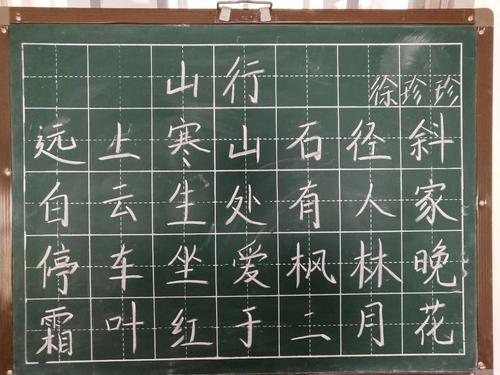 山行
徐珍珍
远上寒山石径斜
自云生处有人家
停车坐爱枫林晚
霜叶红于二月花